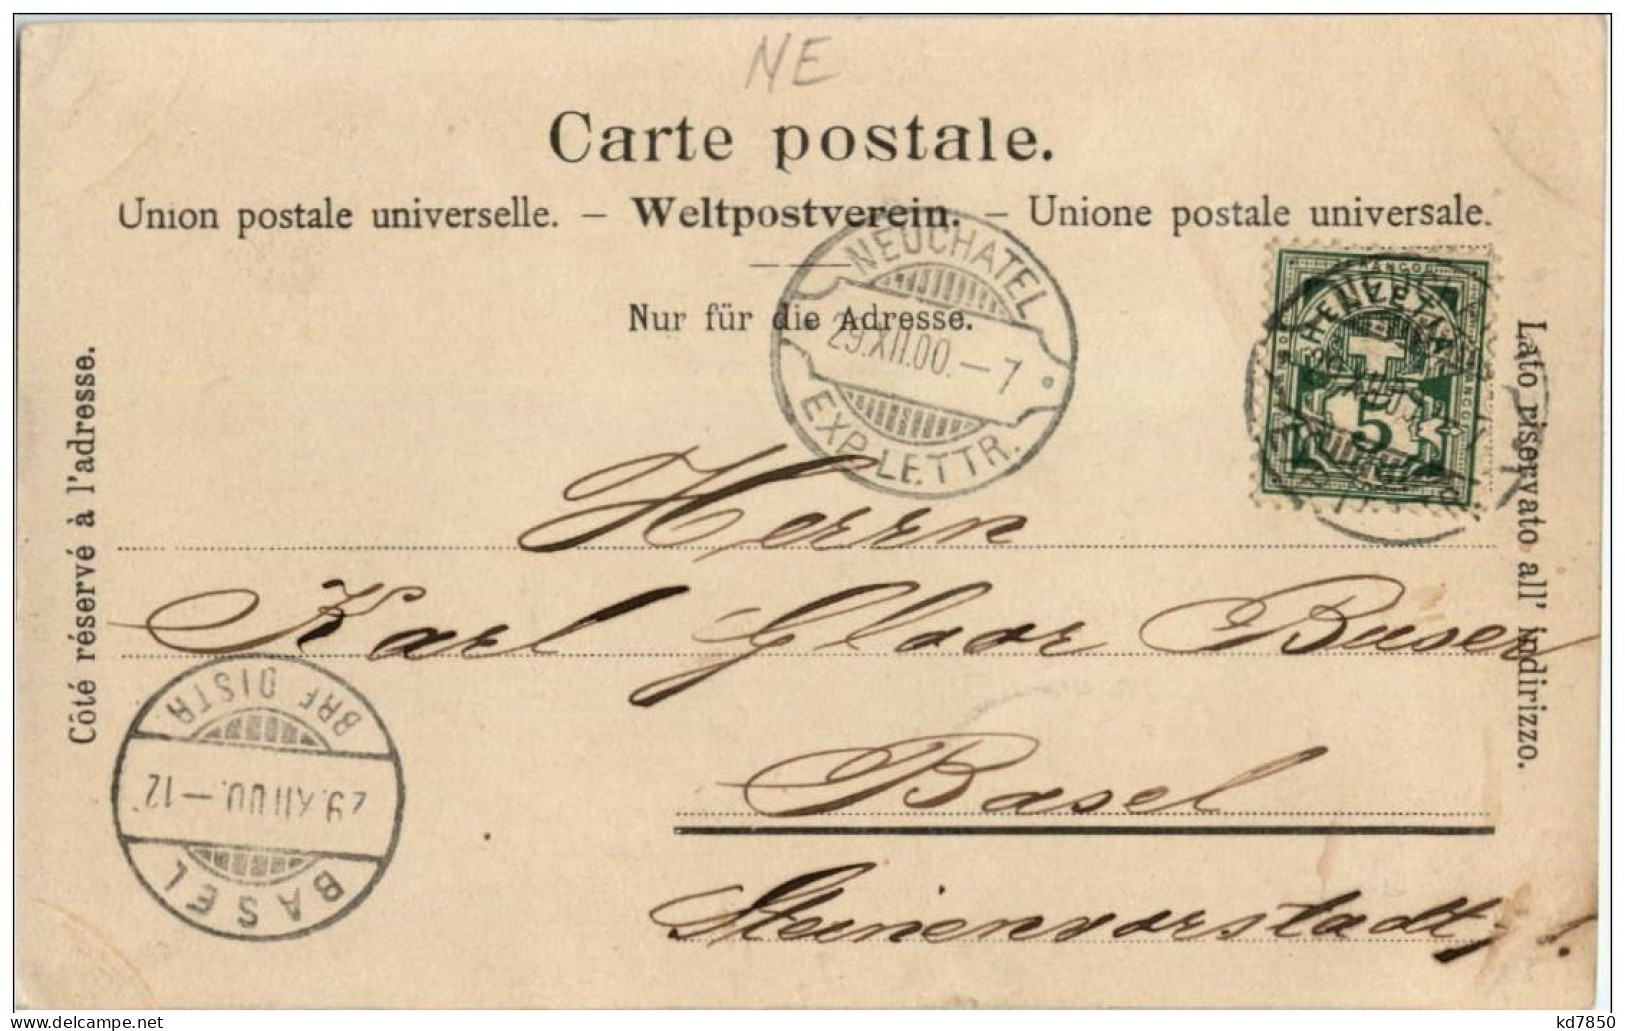 NE
Carte postale.
Union postale universelle. – Weltpostverein. – Unione postale universale.
Nur für die Adresse.
NEUCHATEL
29.XII.00.–7
EXP. LETTR.
FRANCO
5
Côté réservé à l'adresse.
Lato riservato all' indirizzo.
Herrn
Karl Gloor Buser
Basel
Steinenvorstadt
BRF DISTR.
29.XII.00.–12
BASEL
kd7850